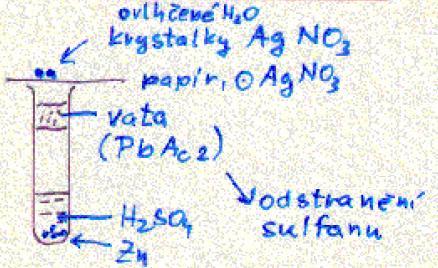 ovlhčené H₂O
krystalky AgNO₃
papír, ⊙ AgNO₃
vata
(PbAc₂)
odstranění
sulfanu
H₂SO₄
Zn